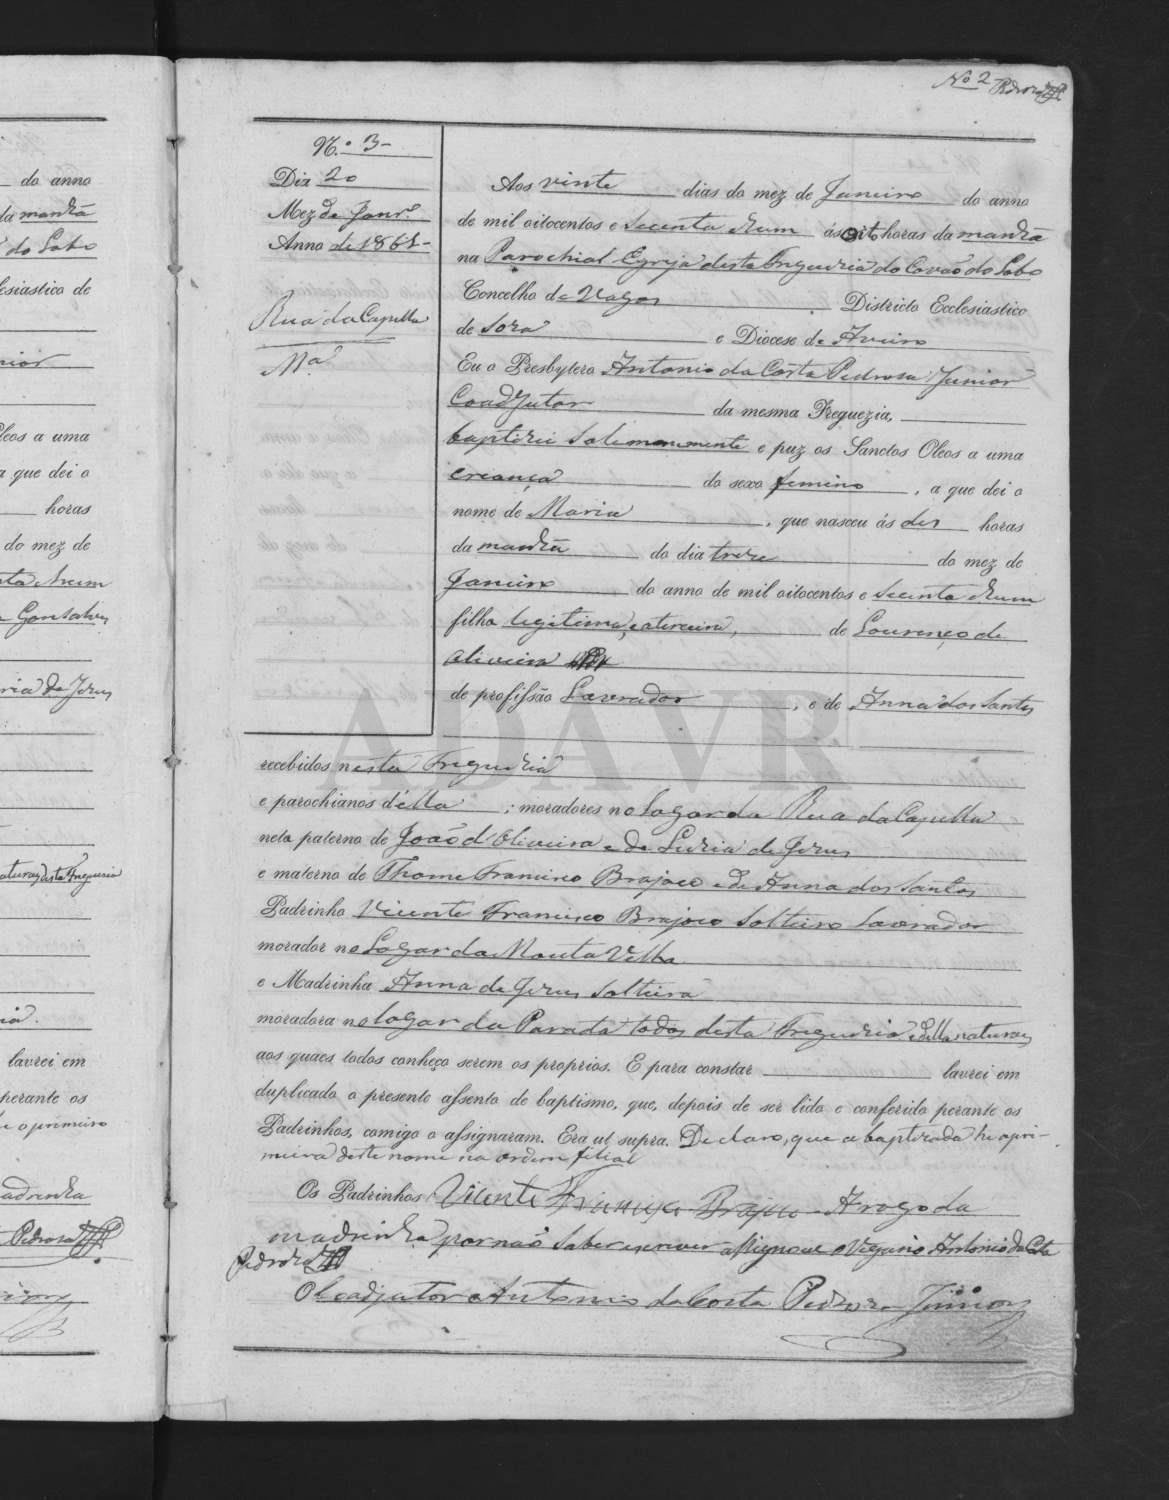 Nº 2 Pedroza
N.º 3-
Dia 20
Mez de Janr.º
Anno de 1861-
Rua da Capella
Mª
Aos vinte dias do mez de Janeiro do anno
de mil oitocentos e secenta e hum ás oito horas da manhã
na Parochial Egreja desta Freguezia do Covão do Lobo
Concelho de Vagos Districto Ecclesiastico
de Soza e Diocese de Aveiro
Eu o Presbytero Antonio da Costa Pedrosa Junior
Coadjutor da mesma Freguezia,
baptizei solemnemente e puz os Sanctos Oleos a uma
creança do sexo femino, a que dei o
nome de Maria, que nasceu ás dez horas
da manhã do dia treze do mez de
Janeiro do anno de mil oitocentos e secenta e hum
filha legitima, e terceira, de Lourenço de
Oliveira
de profissão Lavrador, e de Anna dos Santos
recebidos nesta Freguezia
e parochianos d'élla; moradores no logar da Rua da Capella
neta paterna de João d'Oliveira e de Luzia de Jezus
e materna de Thome Francisco Brajoco e de Anna dos Santos
Padrinho Vicente Francisco Brajoco Solteiro Lavrador
morador no Logar da Mouta Velha
e Madrinha Anna de Jezus Solteira
moradora no logar da Parada todos desta Freguezia e della naturaes
aos quaes todos conheço serem os proprios. E para constar lavrei em
duplicado o presente assento de baptismo, que, depois de ser lido e conferido perante os
Padrinhos, comigo o assignaram. Era ut supra. Declaro, que a baptizada he a pri-
meira deste nome na ordem filial
Os Padrinhos Vicente Francisco Brajoco - A rogo da
madrinha por não saber escrever assignou o Vigario Antonio da Costa
Pedroza
O Coadjutor Antonio da Costa Pedroza Junior
ADAVR
do anno
da manhã
do Lobo
esiastico de
nior
Oleos a uma
a que dei o
horas
do mez de
nta e hum
Gonsalves
ria de Jezus
naturaes desta Freguezia
lavrei em
perante os
he o primeiro
adrinha
Pedroza